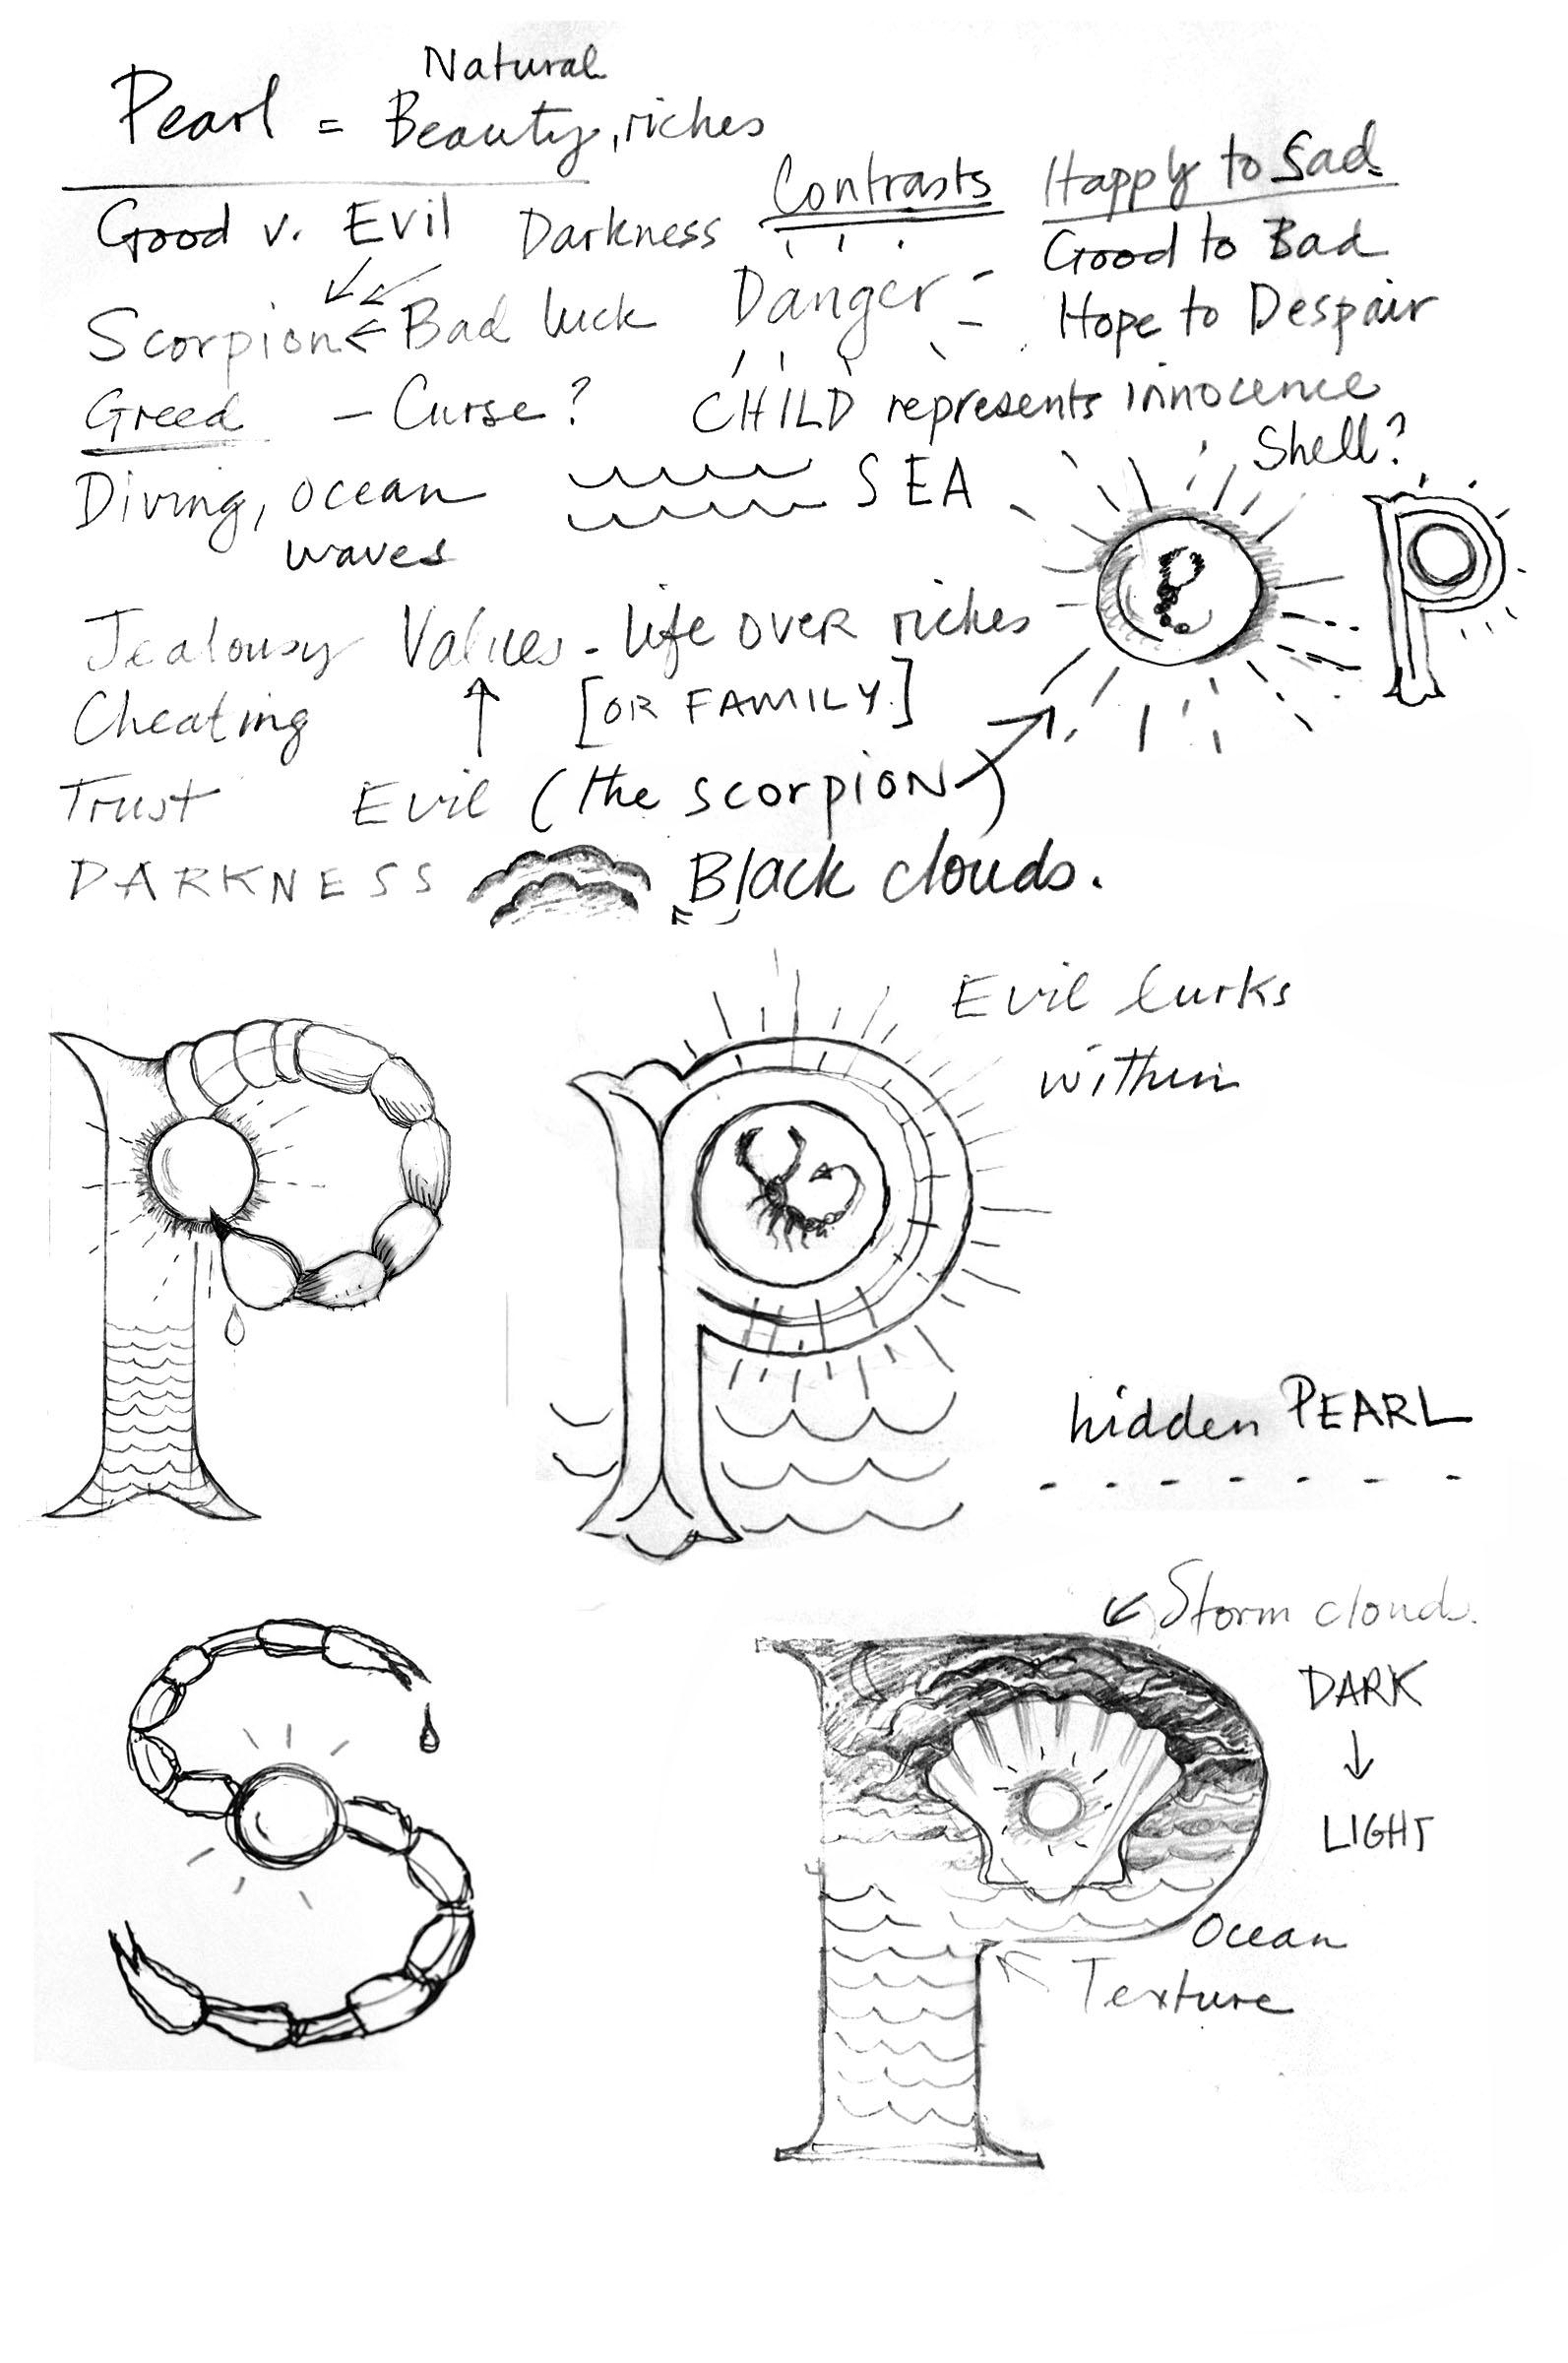 Natural
Pearl = Beauty, riches
Contrasts Happy to Sad
Good v. Evil Darkness
Good to Bad
Scorpion Bad luck Danger
Hope to Despair
Greed - Curse? CHILD represents innocence
Shell?
Diving, ocean SEA
waves
Jealousy Values - life OVER riches
Cheating [OR FAMILY]
Trust Evil (the scorpion)
DARKNESS Black clouds.
Evil lurks
within
hidden PEARL
Storm cloud.
DARK
LIGHT
Ocean
Texture